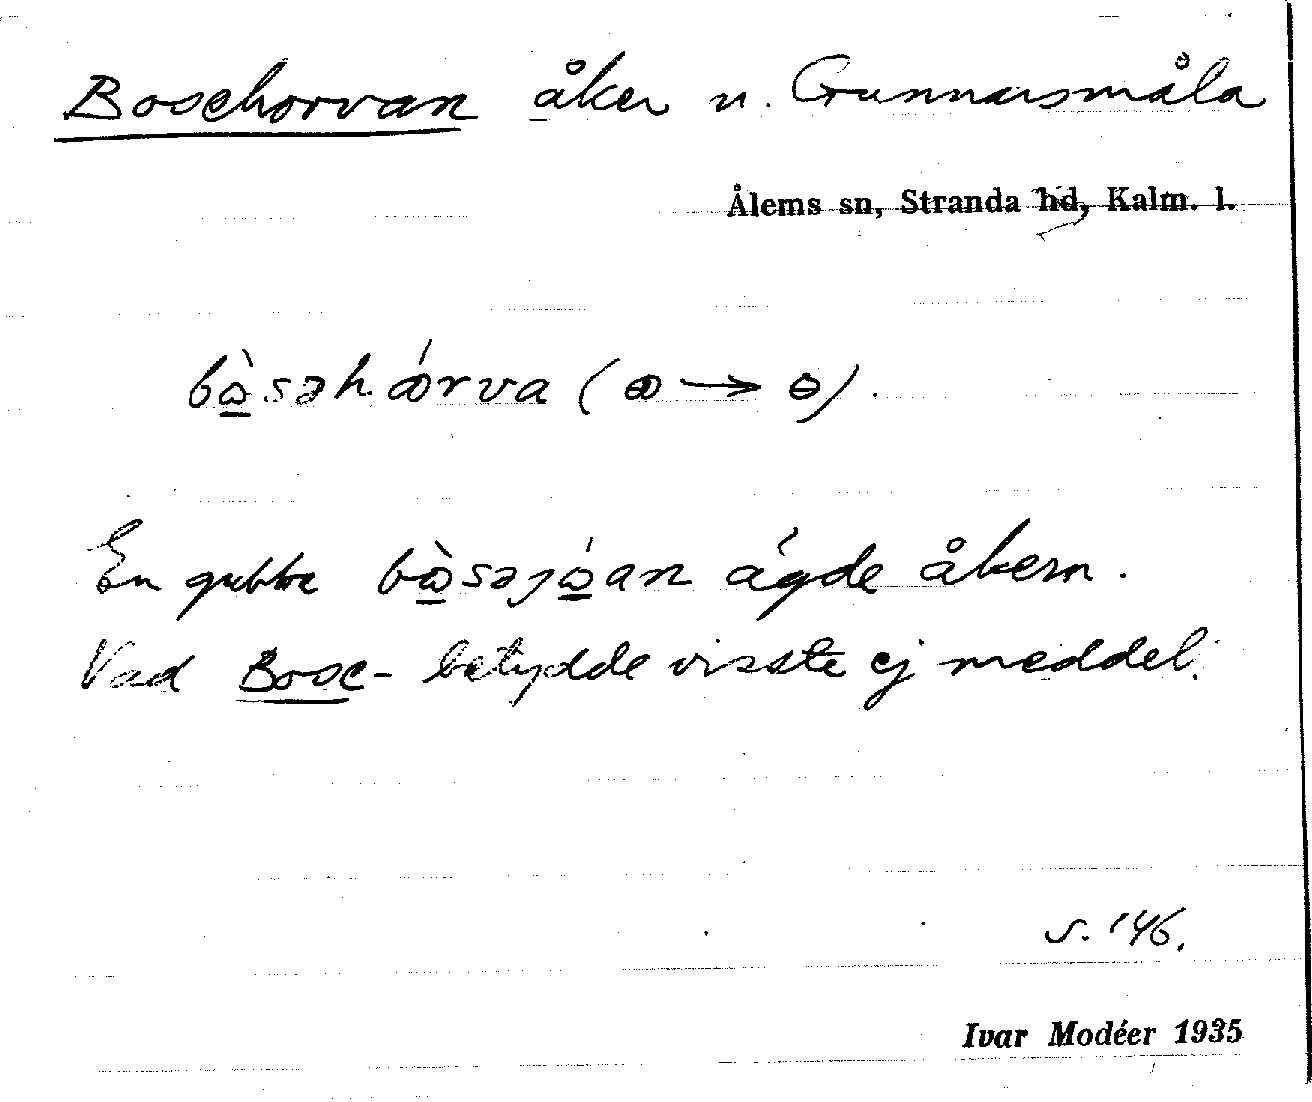 Bosehorvan åker n. Gunnarsmåla
Ålems sn, Stranda hd, Kalm. l.
bὼsəhǿrva (ꝏ → ɵ).
En gubbe bὼsəjώan ägde åkern.
Vad Bose- betydde visste ej meddel.
s. 146.
Ivar Modéer 1935